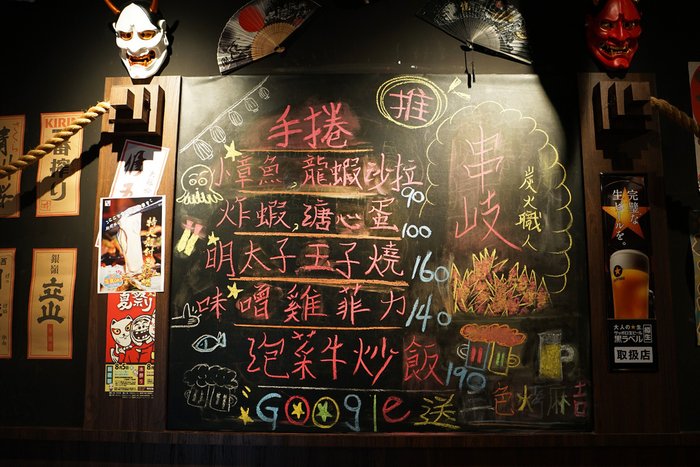 手捲
推
小章魚,龍蝦沙拉 90
炸蝦,溏心蛋 100
明太子玉子燒 160
味噌雞菲力 140
泡菜牛炒飯 190
Google送
三色烤麻吉
串岐
炭火職人
KIRIN
一番搾り
銀嶺
立山
夏祭り
完璧な
生ビール。
黒ラベル
取扱店